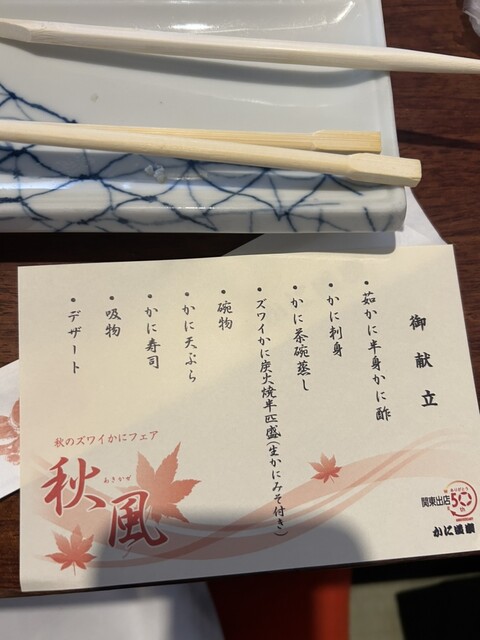 御献立
・茹かに半身かに酢
・かに刺身
・かに茶碗蒸し
・ズワイかに炭火焼半匹盛(生かにみそ付き)
・碗物
・かに天ぷら
・かに寿司
・吸物
・デザート
秋のズワイかにフェア
秋風
あきかぜ
ありがとう
50th
関東出店
かに道楽